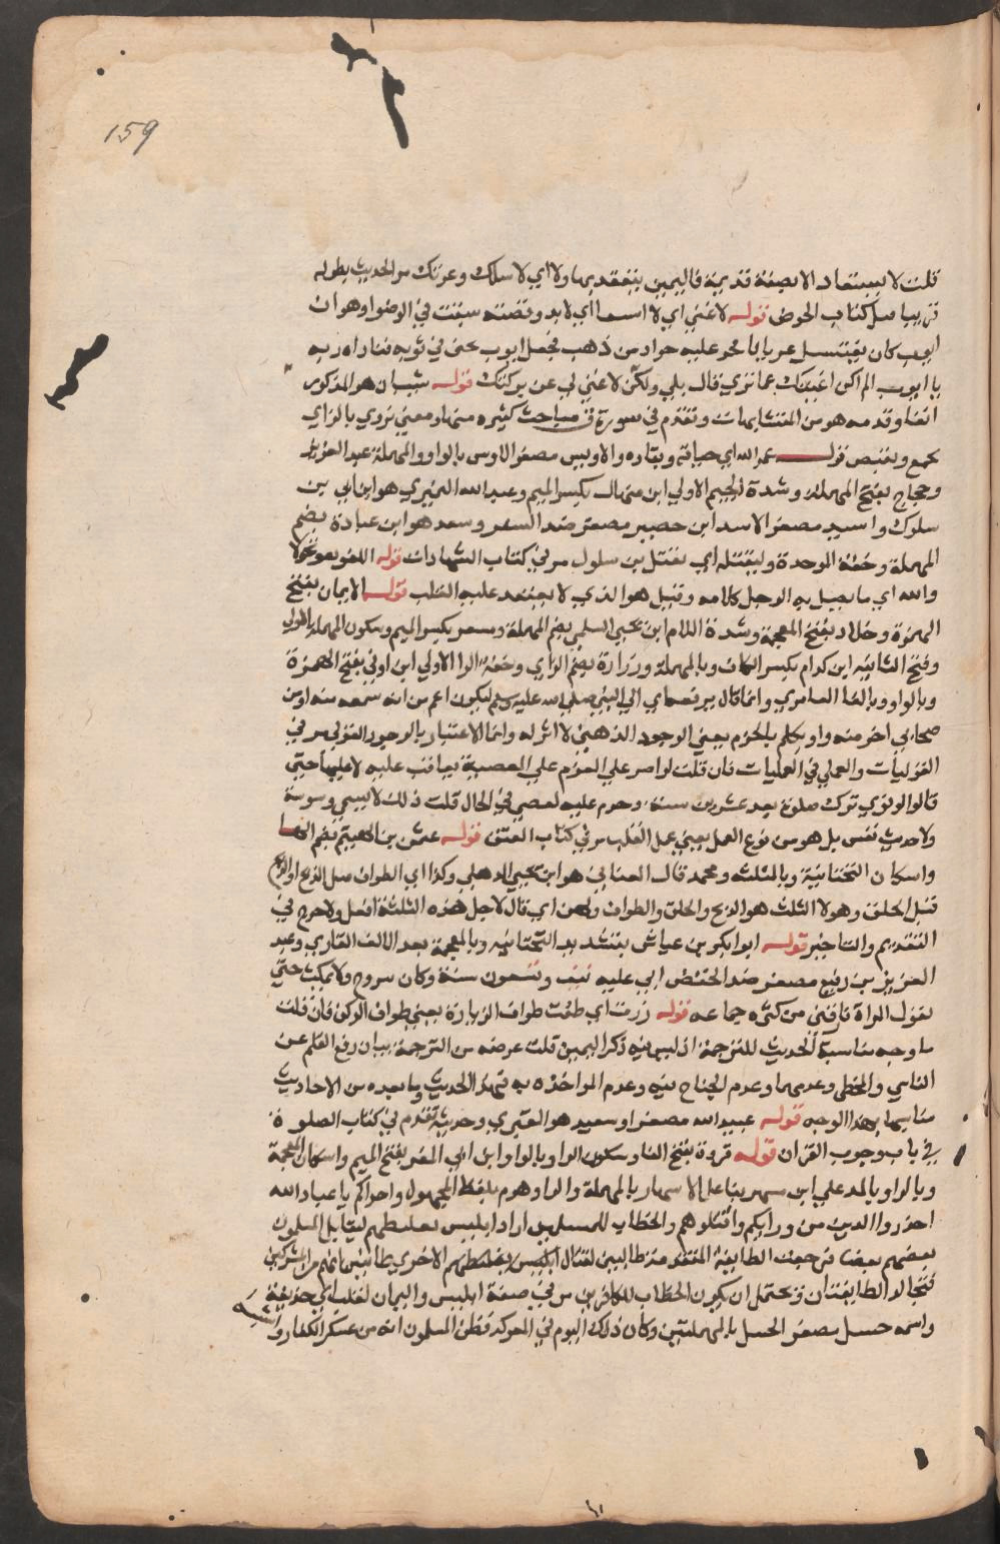 159
قلت لا يستعاذ الا بصفة قديمة فاليمين ينعقد بها ولا اي لا اسلك وعزتك مر الحديث بطوله
قريبا قبل كتاب الحوض قوله لا غنى اي لا استغنا اي لا بد وقصته سبقت في الوضوء وهو ان
ايوب كان يغتسل عريانا فخر عليه جراد من ذهب فجعل ايوب يحثي في ثوبه فناداه ربه
يا ايوب الم اكن اغنيتك عما تري قال بلي ولكن لا غني لي عن بركتك قوله شيبان هو المذكور
انفا وقدمه هو من المتشابهات وتقدم في سورة ق مباحث كثيره منها ومعني تزوي بالزاي
تجمع وتقبض قوله عمر الله اي حياته وبقاؤه والاويس مصغر الاوس بالواو والمهملة عبد العزيز
وحجاج بفتح المهملة وشدة الجيم الاولي ابن منهال بكسر الميم وعبد الله النميري هو ابن ابي بن
سلول واسيد مصغر الاسد ابن حضير مصغر ضد السفر وسعد هو ابن عبادة بضم
المهملة وخفة الموحدة وليقتلنه اي نقتل بن سلول مر في كتاب الشهادات قوله اللغو نحو لا
والله اي ما يصل به الرجل كلامه وقيل هو الذي لا يعتمد عليه القلب قوله الايمان بفتح
الهمزة وخلاد بفتح المعجمة وشدة اللام ابن يحيى السلمي بضم المهملة ومسعر بكسر الميم وسكون المهملة الاولي
وفتح الثانية ابن كدام بكسر الكاف وبالمهملة وزرارة بضم الزاي وخفة الرا الاولي ابن اوفي بفتح الهمزة
وبالواو وبالفا العامري وانما قال يرفعه اي الي النبي صلى الله عليه وسلم ليكون اعم من انه سمعه منه او من
صحابي اخر منه واو يتكلم بالجزم يعني الوجود الذهني لا اثر له وانما الاعتبار بالوجود القولي مر في
القوليات والعملي في العمليات فان قلت لو اصر علي العزم علي المعصية يعاقب عليه لا عليها حتى
قالوا لو نوي ترك صلوة بعد عشرين سنة وجزم عليه لعصي في الحال قلت ذلك لا يسمي وسوسة
ولا حديث نفس بل هو من نوع العمل يعني عمل القلب مر في كتاب العتق قوله عثمن بن الهيثم بفتح الها
واسكان التحتانية وبالمثلثه ومحمد قال الغساني هو ابن يحيي الذهلي وكذا اي الطواف قبل الذبح او الذبح
قبل الحلق وهولا الثلث هو الذبح والحلق والطواف ولهن اي قال لاجل هذه الثلثة افعل ولا حرج في
التقديم والتاخير قوله ابو بكر بن عياش بتشديد التحتانيه وبالمعجمة بعد الالف القاري وعبد
العزيز بن رفيع مصغر ضد الخفض اتي عليه نيف وتسعون سنة وكان يتزوج ولا يمكث حتي
تقول المراة فارقني من كثره جماعه قوله زرت اي طفت طواف الزيارة يعني طواف الركن فان قلت
ما وجه مناسبة الحديث للترجمة اذ ليس فيه ذكر اليمين قلت غرضه من الترجمة بيان رفع القلم عن
الناسي والمخطي وعدمهما وعدم الجناح فيه وعدم المواخذه به فهذا الحديث وما بعده من الاحاديث
مناسبها بهذا الوجه قوله عبيد الله مصغرا وسعيد هو المقبري وحديثه تقدم في كتاب الصلوة
في باب وجوب القران قوله فروة بفتح الفا وسكون الرا وبالواو ابن ابي المغرا بفتح الميم واسكان المعجمة
وبالراو بالمد وعلي ابن مسهر بفاعل الاسهار بالمهملة والرا وهزم بلفظ المجهول واخراكم يا عباد الله
احذروا الذين من ورايكم واقتلوهم والخطاب للمسلمين اراد ابليس تغليطهم ليقاتل المسلمون
بعضهم بعضا فرجعت الطايفة المتقدمة طالبين لقتال الاخري ظانين انهم من المشركين
فتجالد الطايفتان ويحتمل ان يكون الخطاب للكافرين مر في صفة ابليس واليمان لقب ابي حذيفة
واسمه حسيل مصغر الحسل بالمهملتين وكان ذلك اليوم في المعركه فظن المسلمون انه من عسكر الكفار